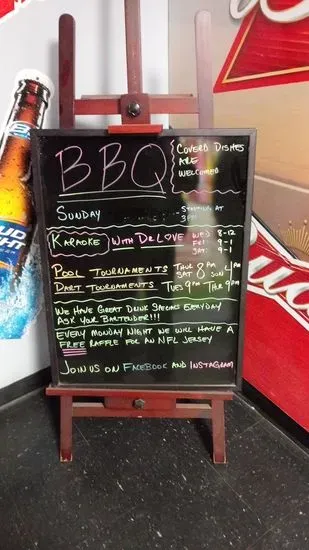 BBQ
COVERD DISHES
ARE
WELCOMED
SUNDAY STARTING AT
3PM
KARAOKE WITH DR LOVE WED 8-12
FRI 9-1
SAT: 9-1
POOL TOURNAMENTS THUR 8PM SUN 4PM
SAT
DART TOURNAMENTS TUES 9PM THUR 9PM
WE HAVE GREAT DRINK SPECIALS EVERYDAY
ASK YOUR BARTENDER!!!
EVERY MONDAY NIGHT WE WILL HAVE A
FREE RAFFLE FOR AN NFL JERSEY
JOIN US ON FACEBOOK AND INSTAGRAM
BUD
LIGHT